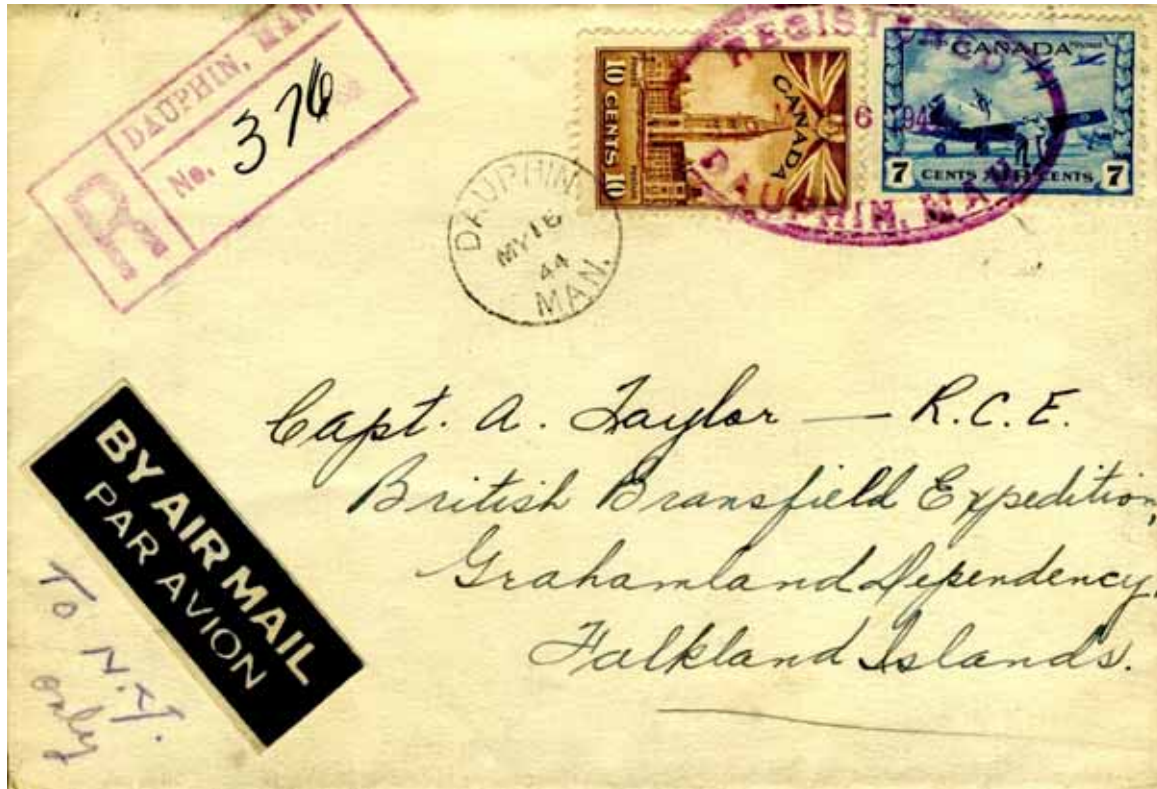 DAUPHIN, MAN.
R
No. 376
10 CENTS 10
CANADA
REGISTERED
DAUPHIN, MAN.
CANADA
7 CENTS AIR CENTS 7
DAUPHIN
MY 16
44
MAN.
Capt. A. Taylor — R.C.E.
British Bransfield Expedition,
Grahamland Dependency,
Falkland Islands.
BY AIR MAIL
PAR AVION
To N.Y.
only